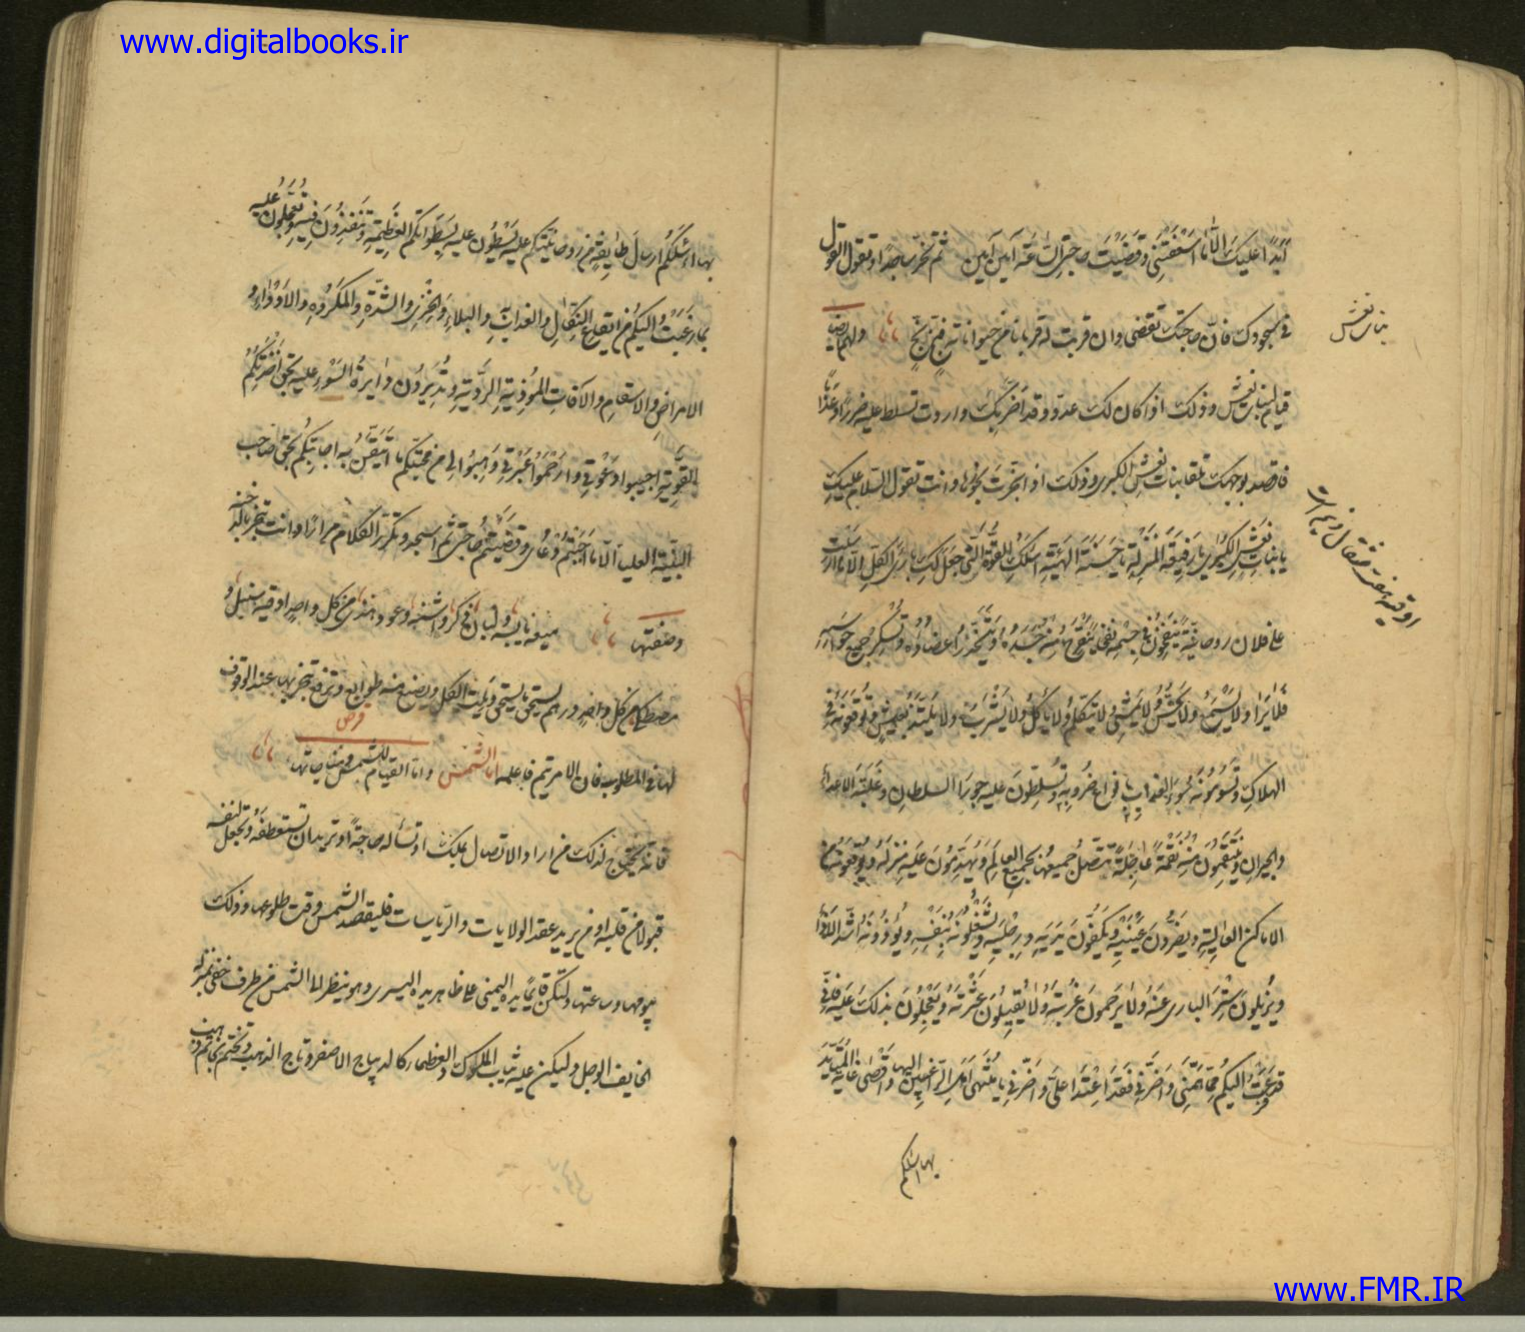 www.digitalbooks.ir
ابدا عليك الا ما اسعفتنى وقضيت حاجتى الساعة آمين آمين ثم تخر ساجدا وتقول القول
فى سجودك فان حاجتك تقضى وان قربت له قربانا من حيواناته فنجح ولهم ايضا
قيام لبنات نعش وذلك اذا كان لك عدو وقد اضر بك واردت تسلط عليه ضررا وعذابا
فاقصد بوجهك تلقا بنات نعش الكبرى وذلك اذا بخرت بخورها وانت تقول السلام عليك
يا بنات نعش الكبرى يا رفيعة المنزلة يا حسنة الهيئة اسئلك بالقوة التى جعل لك بارى الكل الا ما ارسلت
على فلان روحانية ينفخون فى جسمه نفخا جسده ويتخدر اعضاؤه وتسكر جميع حواسه
فلا يرا ولا يسمع ولا يمشى ولا يتكلم ولا يأكل ولا يشرب ولا يلتذ بعيش وتوقعونه فى
الهلاك وتسومونه سوء العذاب فى انواع ضروبه وتسلطون عليه جور السلطان وغلبة الاعداء
والجيران وينتقمون منه نقمة عاجلة تتصل جميعها بجميع العالم ويهدمون عليه منزله ويوقعونه من
الاماكن العالية ويضرون عينيه ويكفون يديه ورجليه ويشغلونه بنفسه ويؤذونه اشد الاذا
ويزيلون ستر البارى عنه ولا يرحمون غربته ولا يقيلون عثرته ويعجلون بذلك عليه فانى
قد رغبت اليكم مما همنى واضرنى فقد اعتدا على واضرنى يا منتهى امل الراغبين اليها واقصى غاية المتأيد
بها اسئلكم
بنات نعش
اوقيه هفت مثقال ونيم است
بها اسئلكم ارسال طايفة من روحانيتكم عليه يسطون عليه بسطواتكم العظيمة وتنفذون فيه وتعجلون عليه
بما رغبت اليكم من ايقاع النكال والعذاب والبلاء والخزى والشدة والمكروه والادواء و
الامراض والاسقام والآفات المؤذية الردية وتديرون دايرة السوء عليه بحق
القوية اجيبوا دعوتى وارحموا عبرتى وهبوا لى من محبتكم ما اتيقن به اجابتكم بحق صاحب
البنية العليا الا ما اجبتم دعائى وقضيتم حاجتى ثم اسجد وتكرر الكلام مرارا وانت تبخر بالدخنة
وصفتها ميعه يابسه ولبان ذكر واشنه وعود هندى من كل واحد اوقيه سنبل و
مصطكى من كل واحد درهم يستحق يستحق ويلت الكل ويصنع منه طوابع وترفع تبخر بها عند الوقوف
لها فى المطلوب فان الامر يتم فاعلمه اما الشمس واما القيام للشمس ومناجاتها
قرص
فانه يحتاج لذلك من اراد الاتصال بملك او تسأله حاجة او تريد ان تستعطفه وتجعل لنفسه
قبولا من قلبه او من يريد عقد الولايات والرياسات فليقصد الشمس وقت طلوعها وذلك
يومها وساعتها ولتكن قايما يده اليمنى على ظاهر يده اليسرى وهو ينظر الى الشمس من طرف خفى بمنزلة
الخايف الوجل وليكن عليه ثياب الملوك والعظماء كالديباج الاصفر وتاج الذهب وتختم بخاتم ذهب
www.FMR.IR